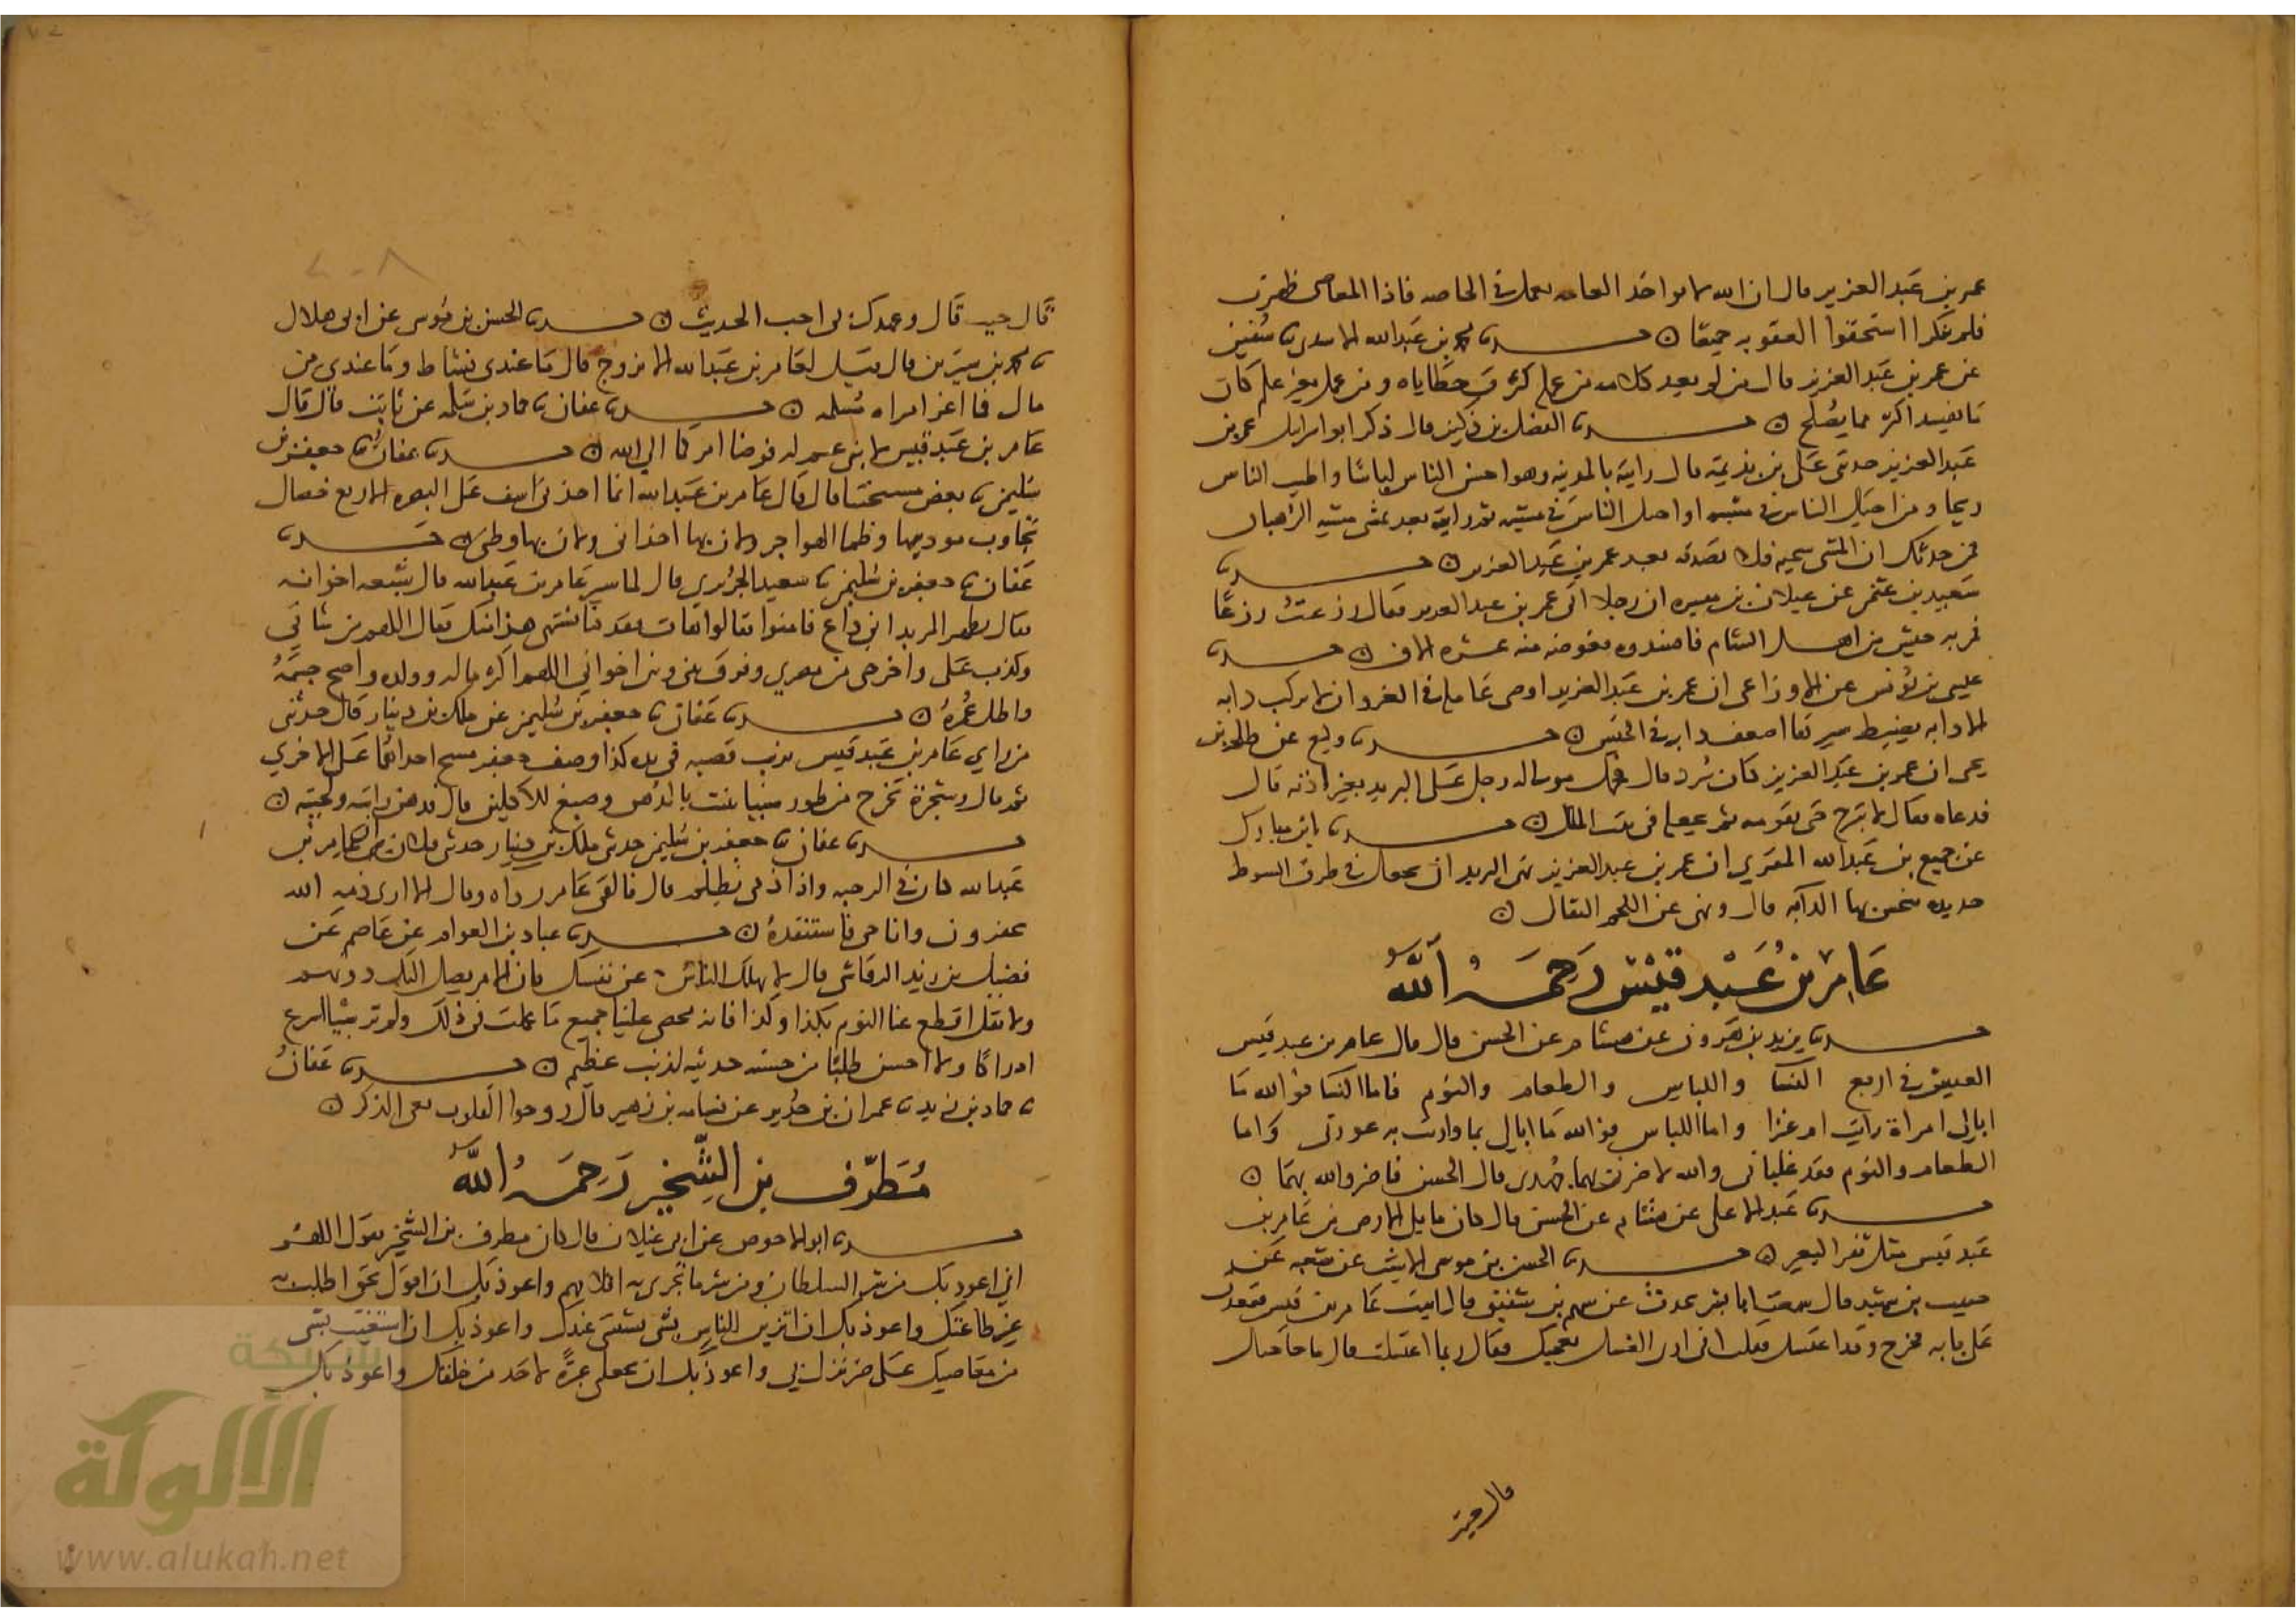 عمر بن عبد العزيز قال ان الله لا يواخذ العامه بعمل في الخاصه فاذا المعاصي ظهرت
فلم تنكر استحقوا العقوبه جميعا ه حدثنا محمد بن عبد الله الاسدي نا سفين
عن عمر بن عبد العزيز قال من لم يعد كلامه من عمله كثرت خطاياه ومن عمل بغير علم كان
ما يفسد اكثر مما يصلح ه حدثنا الفضل بن دكين قال ذكر ابو اسرايل عمر بن
عبد العزيز حدثني علي بن بذيمه قال رايته بالمدينه وهو احسن الناس لباسا واطيب الناس
ريحا ومن اخيل الناس في مشيه او اخيل الناس في مشيته ثم رايته بعد يمشي مشيه الرهبان
فمن حدثك ان المشي سجيه فلا تصدقه بعد عمر بن عبد العزيز ه حدثنا
سعيد بن عثمن عن غيلان بن ميسره ان رجلا اتى عمر بن عبد العزيز فقال زرعت زرعا
فمر به جيش من اهل الشام فافسدوه فعوضه منه عشره الاف ه حدثنا
عيسى بن يونس عن الاوزاعي ان عمر بن عبد العزيز اوصى عامله في الغزو ان لا يركب دابه
الا دابه يضبط سيرها اضعف دابه في الجيش ه حدثنا وكيع عن طلحه بن
يحيى ان عمر بن عبد العزيز كان يبرد قال فحمل مولى له رجل على البريد بغير اذنه قال
فدعاه فقال لا تبرح حتى تقومه ثم تجعله في بيت المال ه حدثنا ابن مبارك
عن جميع بن عبد الله المقري ان عمر بن عبد العزيز نهى البريد ان يجعل في طرف السوط
حديده ينخس بها الدابه قال ونهى عن اللجم الثقال ه
عامر بن عبد قيس رحمه الله
حدثنا يزيد بن هرون عن هشام عن الحسن قال قال عامر بن عبد قيس
العيش في اربع النسا واللباس والطعام والنوم فاما النسا فوالله ما
ابالي امراة رايت ام عنزا واما اللباس فوالله ما ابالي بما واريت به عورتي واما
الطعام والنوم فقد غلباني والله لاضرن بهما جهدي قال الحسن فاضر والله بهما ه
حدثنا عبد الاعلى عن هشام عن الحسن قال كان ما يلي الارض من عامر بن
عبد قيس مثل ثفن البعير ه حدثنا الحسن بن موسى الاشيب عن شعبه عن
حبيب بن شهيد قال سمعت ابا بشر يحدث عن سهم بن شقيق قال اتيت عامر بن قيس فقعدت
على بابه فخرج وقد اغتسل فقلت اني ارى الغسل يعجبك فقال ربما اغتسلت قال ما حاجتك
قال جيت
قال جيت قال وعهدك بي احب الحديث ه حدثنا الحسن بن موسى عن ابي هلال
نا محمد بن سيرين قال قيل لعامر بن عبد الله الا تزوج قال ما عندي نشاط وما عندي من
مال فما اغر امراه مسلمه ه حدثنا عفان نا حماد بن سلمه عن ثابت قال قال
عامر بن عبد قيس لابني عم له فوضا امركما الى الله ه حدثنا عفان نا جعفر بن
سليمن نا بعض مشيختنا قال قال عامر بن عبد الله انما اجدني اسف على البصره لاربع خصال
تجاوب موذنيها وظما الهواجر ولان بها اخواني ولان بها وطني ه حدثنا
عفان نا جعفر بن سليمن نا سعيد الجريري قال لما سير عامر بن عبد الله قال شيعه اخوانه
فقال بظهر المربد اني داع فامنوا فقالوا هات فقد كنا نشتهي هذا منك فقال اللهم من ساني
وكذب علي واخرجني من مصري وفرق بيني وبين اخواني اللهم اكثر ماله وولده واصح جسمه
واطل عمره ه حدثنا عفان نا جعفر بن سليمن عن ملك بن دينار قال حدثني
من راي عامر بن عبد قيس
عبد الله كان في الرحبه واذا ذمي يظلم قال فالقى عامر رداه وقال لا ارى ذمه الله
تخفر وانا حي فاستنقذه ه حدثنا عباد بن العوام عن عاصم عن
فضيل بن زيد الرقاشي قال لا يهلك الناس عن نفسك فان الامر يصل اليك دونهم
ولا تقل اقطع عنا اليوم بكذا وكذا فانه محصى علينا جميع ما عملت في ذلك ولم تر شيا اسرع
ادراكا ولا احسن طلبا من حسنه حديثه لذنب عظيم ه حدثنا عفان
نا حماد بن زيد نا عمران بن حدير عن قسامه بن زهير قال روحوا القلوب تعي الذكر ه
مطرف بن الشخير رحمه الله
حدثنا ابو الاحوص عن ابي غيلان قال كان مطرف بن الشخير يقول اللهم
اني اعوذ بك من شر السلطان ومن شر ما تجري به اقلامهم واعوذ بك ان اقول بحق اطلب به
غير طاعتك واعوذ بك ان اتزين للناس بشي يشينني عندك واعوذ بك ان استغيث بشي
من معاصيك على ضر نزل بي واعوذ بك ان تجعلني عبرة لاحد من خلقك واعوذ بك
شبكة
الألوكة
www.alukah.net